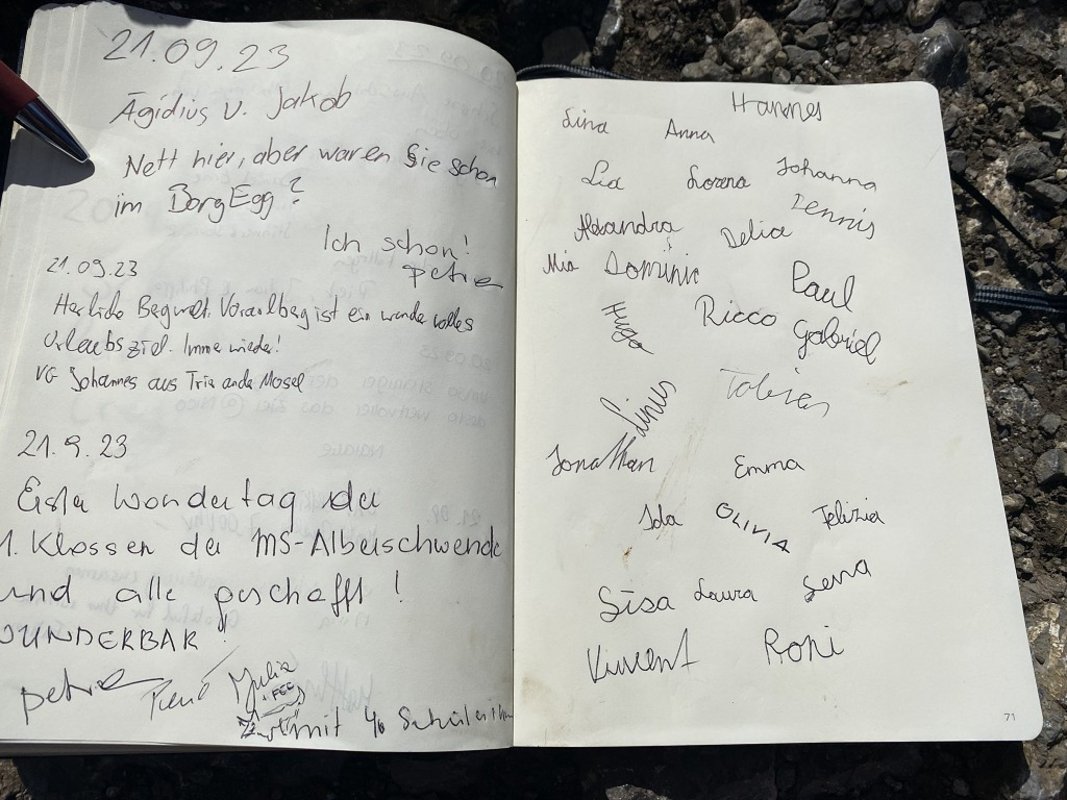 21.09.23
Ägidius u. Jakob
Nett hier, aber waren Sie schon
im BorgEgg?
Ich schon!
petra
21.09.23
Herrliche Bergwelt. Vorarlberg ist ein wundervolles
Urlaubsziel. Immer wieder!
VG Johannes aus Trier an der Mosel
21.9.23
Erster Wandertag der
1. Klassen der MS-Alberschwende
und alle geschafft!
WUNDERBAR!
petra René Julia
mit 40 Schüler
Hannes
Lina Anna
Lia Lorena Johanna
Dennis
Alexandra Delia
Mia Dominic Paul
Hugo Ricco Gabriel
Tobias
Linus
Jonathan Emma
Ida OLIVIA Felizia
Sisa Laura Sena
Vincent Roni
71